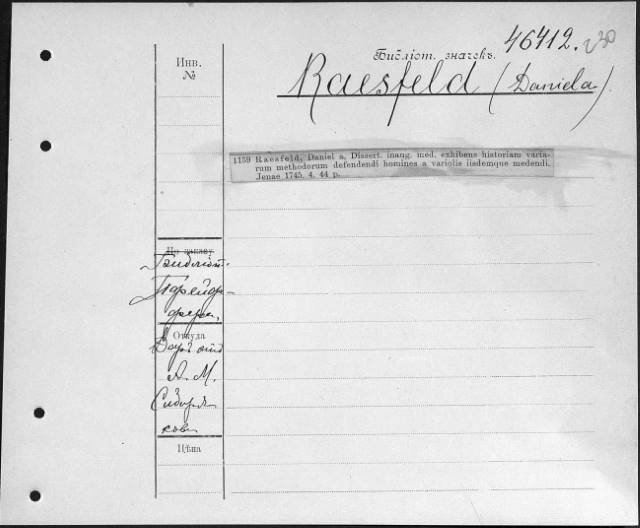 46412. 230
Инв.
№
Библіот. значекъ.
Raesfeld (Daniela)
1159 Raesfeld, Daniel a, Dissert. inaug. med. exhibens historiam varia-
rum methodorum defendendi homines a variolis iisdemque medendi.
Jenae 1745. 4. 44 p.
По заказу
Библіот.
Парейдр-
фера,
Откуда
Даръ отъ
А. М.
Сибиря-
кова
Цѣна